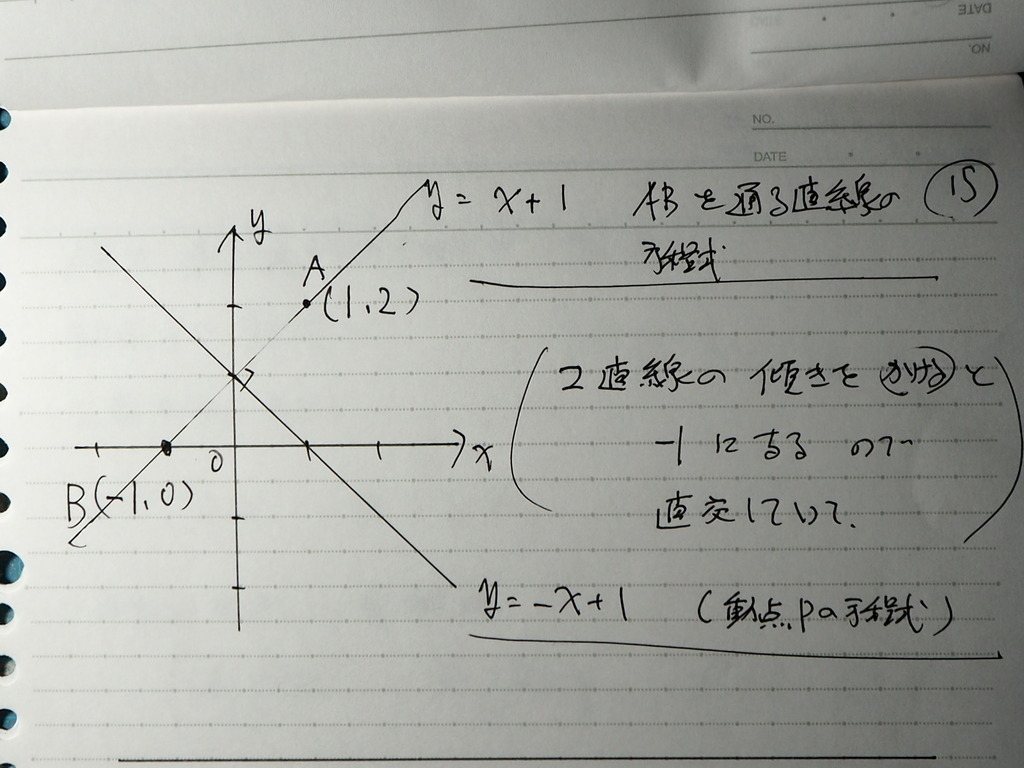 DATE
NO.
NO.
DATE
y = x+1 ABを通る直線の 15
方程式
y
A
(1,2)
2直線の傾きをかけると
-1になるので
直交していて、
0
x
B(-1,0)
y=-x+1 (動点Pの方程式)